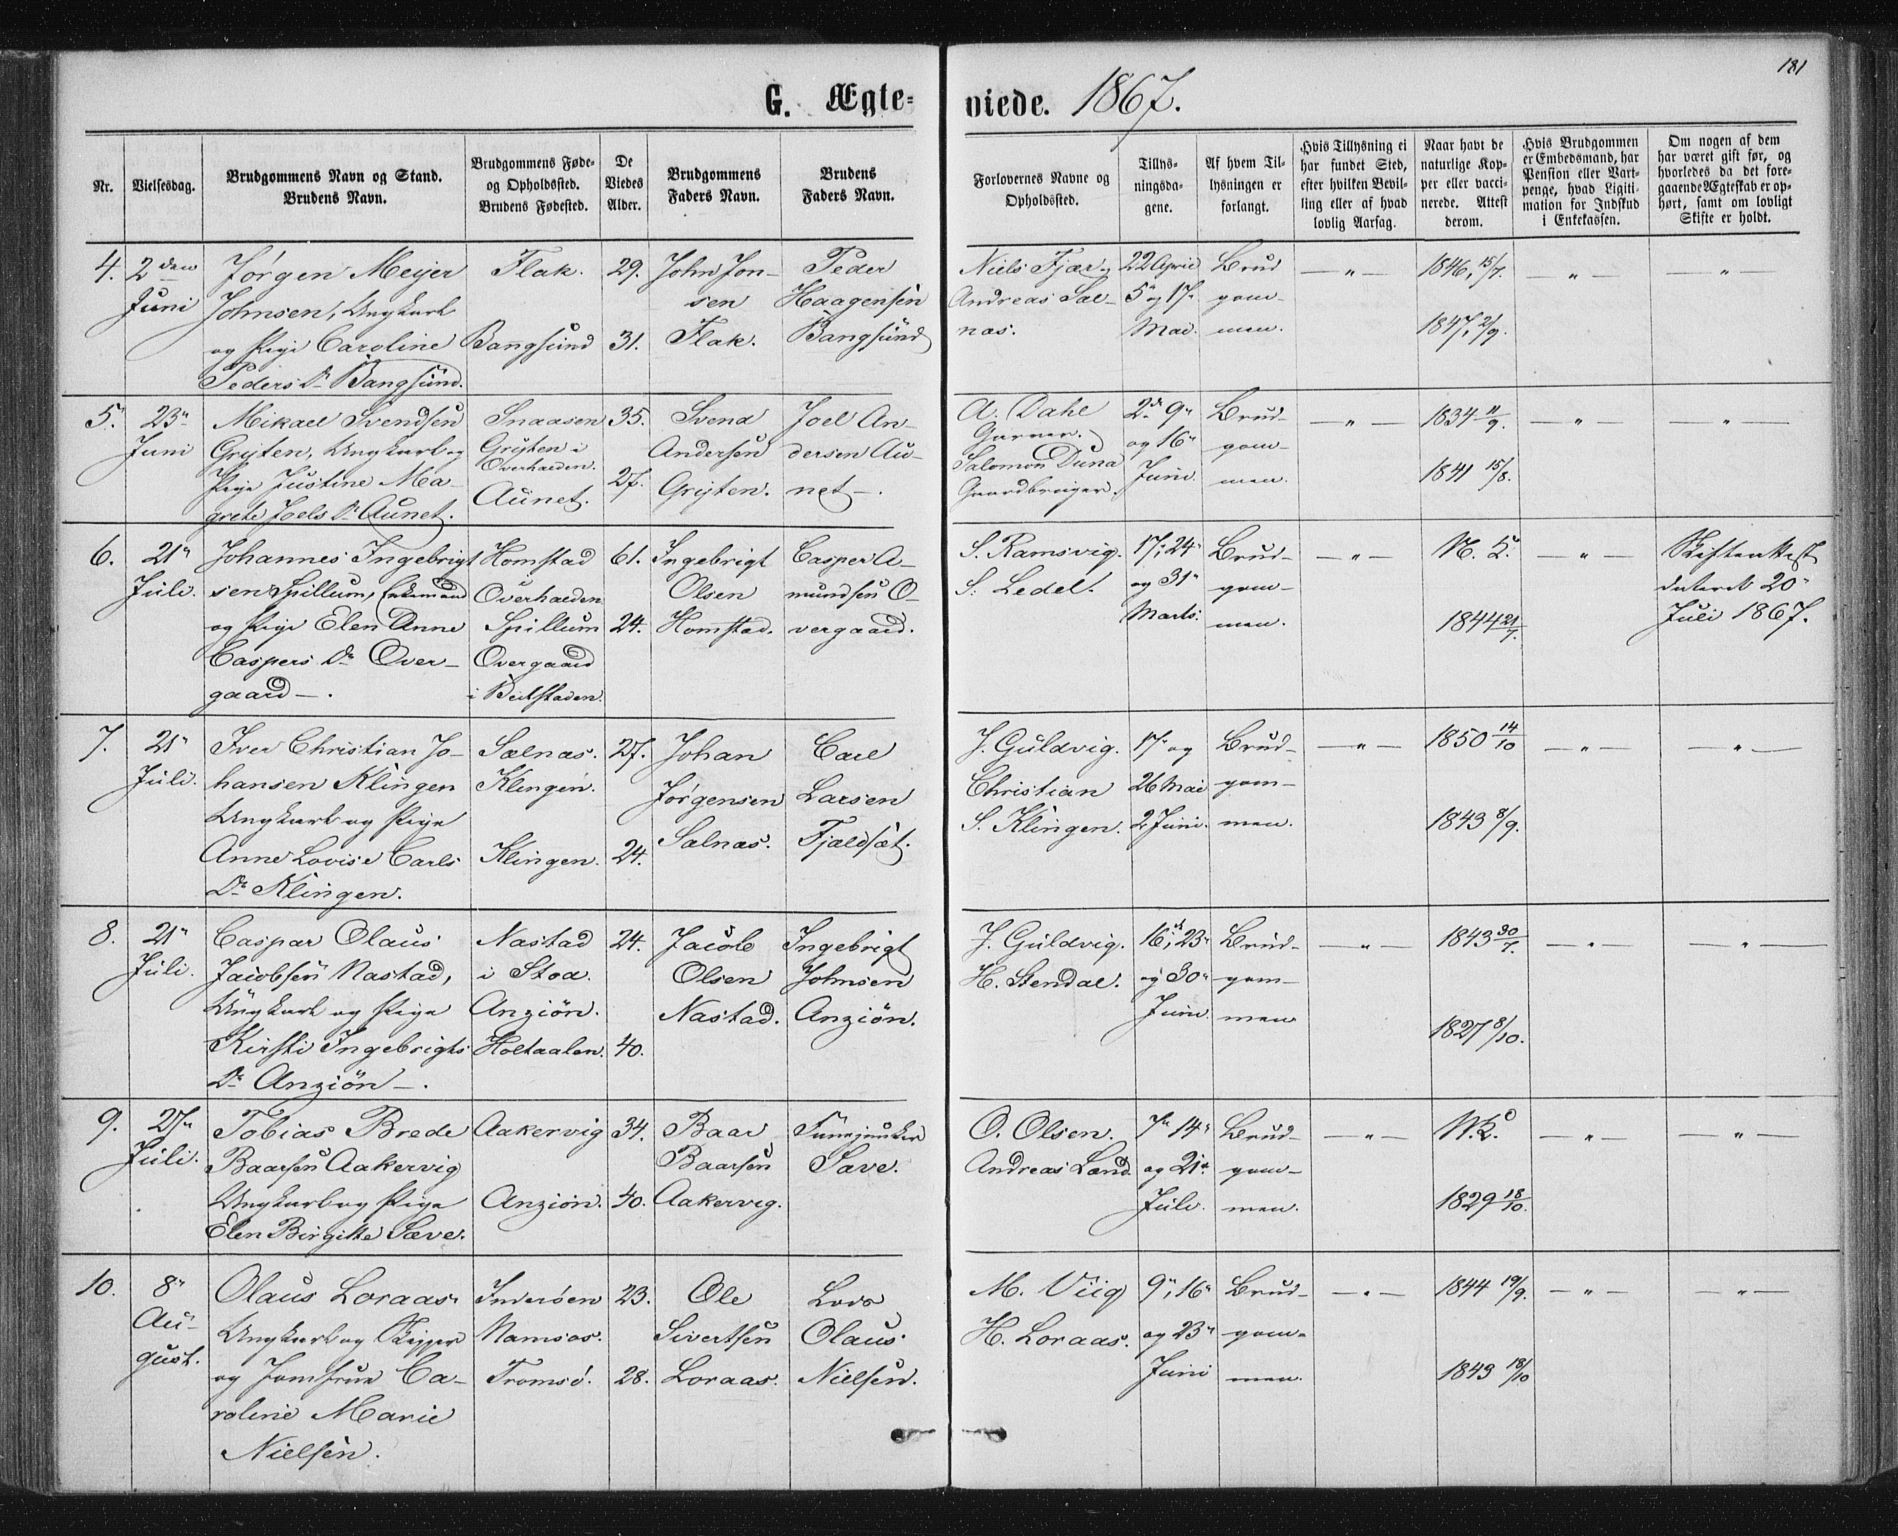 181
G. Ægteviede. 1867.
Nr.
Vielsesdag.
Brudgommens Navn og Stand.
Brudens Navn.
Brudgommens Føde-
og Opholdssted.
Brudens Fødested.
De
Viedes
Alder.
Brudgommens
Faders Navn.
Brudens
Faders Navn.
Forlovernes Navne og
Opholdssted.
Tillys-
ningsda-
gene.
Af hvem Til-
lysningen er
forlangt.
Hvis Tillysning ei
har fundet Sted,
efter hvilken Bevil-
ling eller af hvad
lovlig Aarsag.
Naar havt de
naturlige Kop-
per eller vacci-
nerede. Attest
derom.
Hvis Brudgommen
er Embedsmand, har
Pension eller Vart-
penge, hvad Ligiti-
mation for Indskud
i Enkekassen.
Om nogen af dem
har været gift før, og
hvorledes da det fore-
gaaende Ægteskab er op-
hørt, samt om lovligt
Skifte er holdt.
4.
2den
Juni
Jørgen Meijer
Johnsen, Ungkarl
og Pige Caroline
Peders Dr Bangsund.
Flak.
Bangsund
29.
31.
John Jon-
sen
Flak.
Peder
Haagensen
Bangsund
Niels Fjær
Andreas Sal-
nas.
22 April
5te og 17de
Mai.
Brud
gom-
men.
— " —
1846, 15/7.
1847, 2/9.
— " —
— " —
5.
23de
Juni
Mikael Svendsen
Grijten, Ungkarl og
Pige Justine Ma-
grete Joels Dr Aunet.
Snaasen
Grijten i
Overhalden.
Aunet.
35.
27.
Svend
Andersen
Grijten.
Joel An-
dersen Au-
net —.
A. Dahl
Garver.
Salomon Duna
Gaardbruger.
2den 9de
og 16de
Juni.
Brud-
gom-
men.
— " —
1834 11/9.
1841 15/8.
— " —
— " —
6.
21de
Juli.
Johannes Ingebrigt
sen Spillum, Enkemand
og Pige Elen Anne
Caspers Dr Over-
gaard —.
Homstad
Overhalden
Spillum
Overgaard
i Beitstaden.
61.
24.
Ingebrigt
Olsen
Homstad.
Casper A-
mundsen O-
vergaard.
S. Ramsvig.
S. Ledel.
17de, 24de
og 31de
Marts.
Brud-
gom-
men.
— " —
N. K.
1844 21/7.
— " —
Skifteattest
dateret 20de
Juli 1867.
7.
21de
Juli.
Iver Christian Jo-
hansen Klingen
Ungkarl og Pige
Anne Lovise Carls
Dr Klingen.
Salnas.
Klingen.
Klingen.
27.
24.
Johan
Jørgensen
Salnas.
Carl
Larsen
Fjeldsæt.
J. Guldvig.
Christian
S. Klingen.
17de og
26 Mai
2 Juni.
Brud-
gom-
men.
— " —
1850 14/10
1843 8/9.
— " —
— " —
8.
21de
Juli.
Caspar Olaus
Jacobsen Nastad,
Ungkarl og Pige
Kirsti Ingebrigts
Dr Anziön —.
Nastad
i Stoa.
Anziön.
Holtaalen.
24.
40.
Jacob
Olsen
Nastad.
Ingebrigt
Johnsen
Anziön.
J. Guldvig.
H. Stendal.
16de, 23de
og 30de
Juni.
Brud-
gom-
men
— " —
1843 30/7.
1827 8/10.
— " —
— " —
9.
27de
Juli.
Tobias Brede
Baarsen Aakervig
Ungkarl og Pige
Elen Birgitte Save.
Aakervig
Anziön.
34.
40.
Baar
Baarsen
Aakervig.
Fanejunker
Save.
O. Olsen.
Andreas Land
7de 14de
og 21de
Juli.
Brud-
gom-
men.
— " —
N. K.
1829 18/10.
— " —
— " —
10.
8de
Au-
gust.
Olaus Loraas.
Ungkarl og Skipper
og Jomfrue Ca-
roline Marie
Nielsen.
Inderøen
Namsos.
Tromsö.
23.
28.
Ole
Sivertsen
Loraas.
Lods
Olaus
Nielsen.
M. Viig
H. Loraas.
9de, 16de
og 23de
Juni
Brud-
gom-
men.
— " —
1844 19/9.
1843 18/10
— " —
— " —